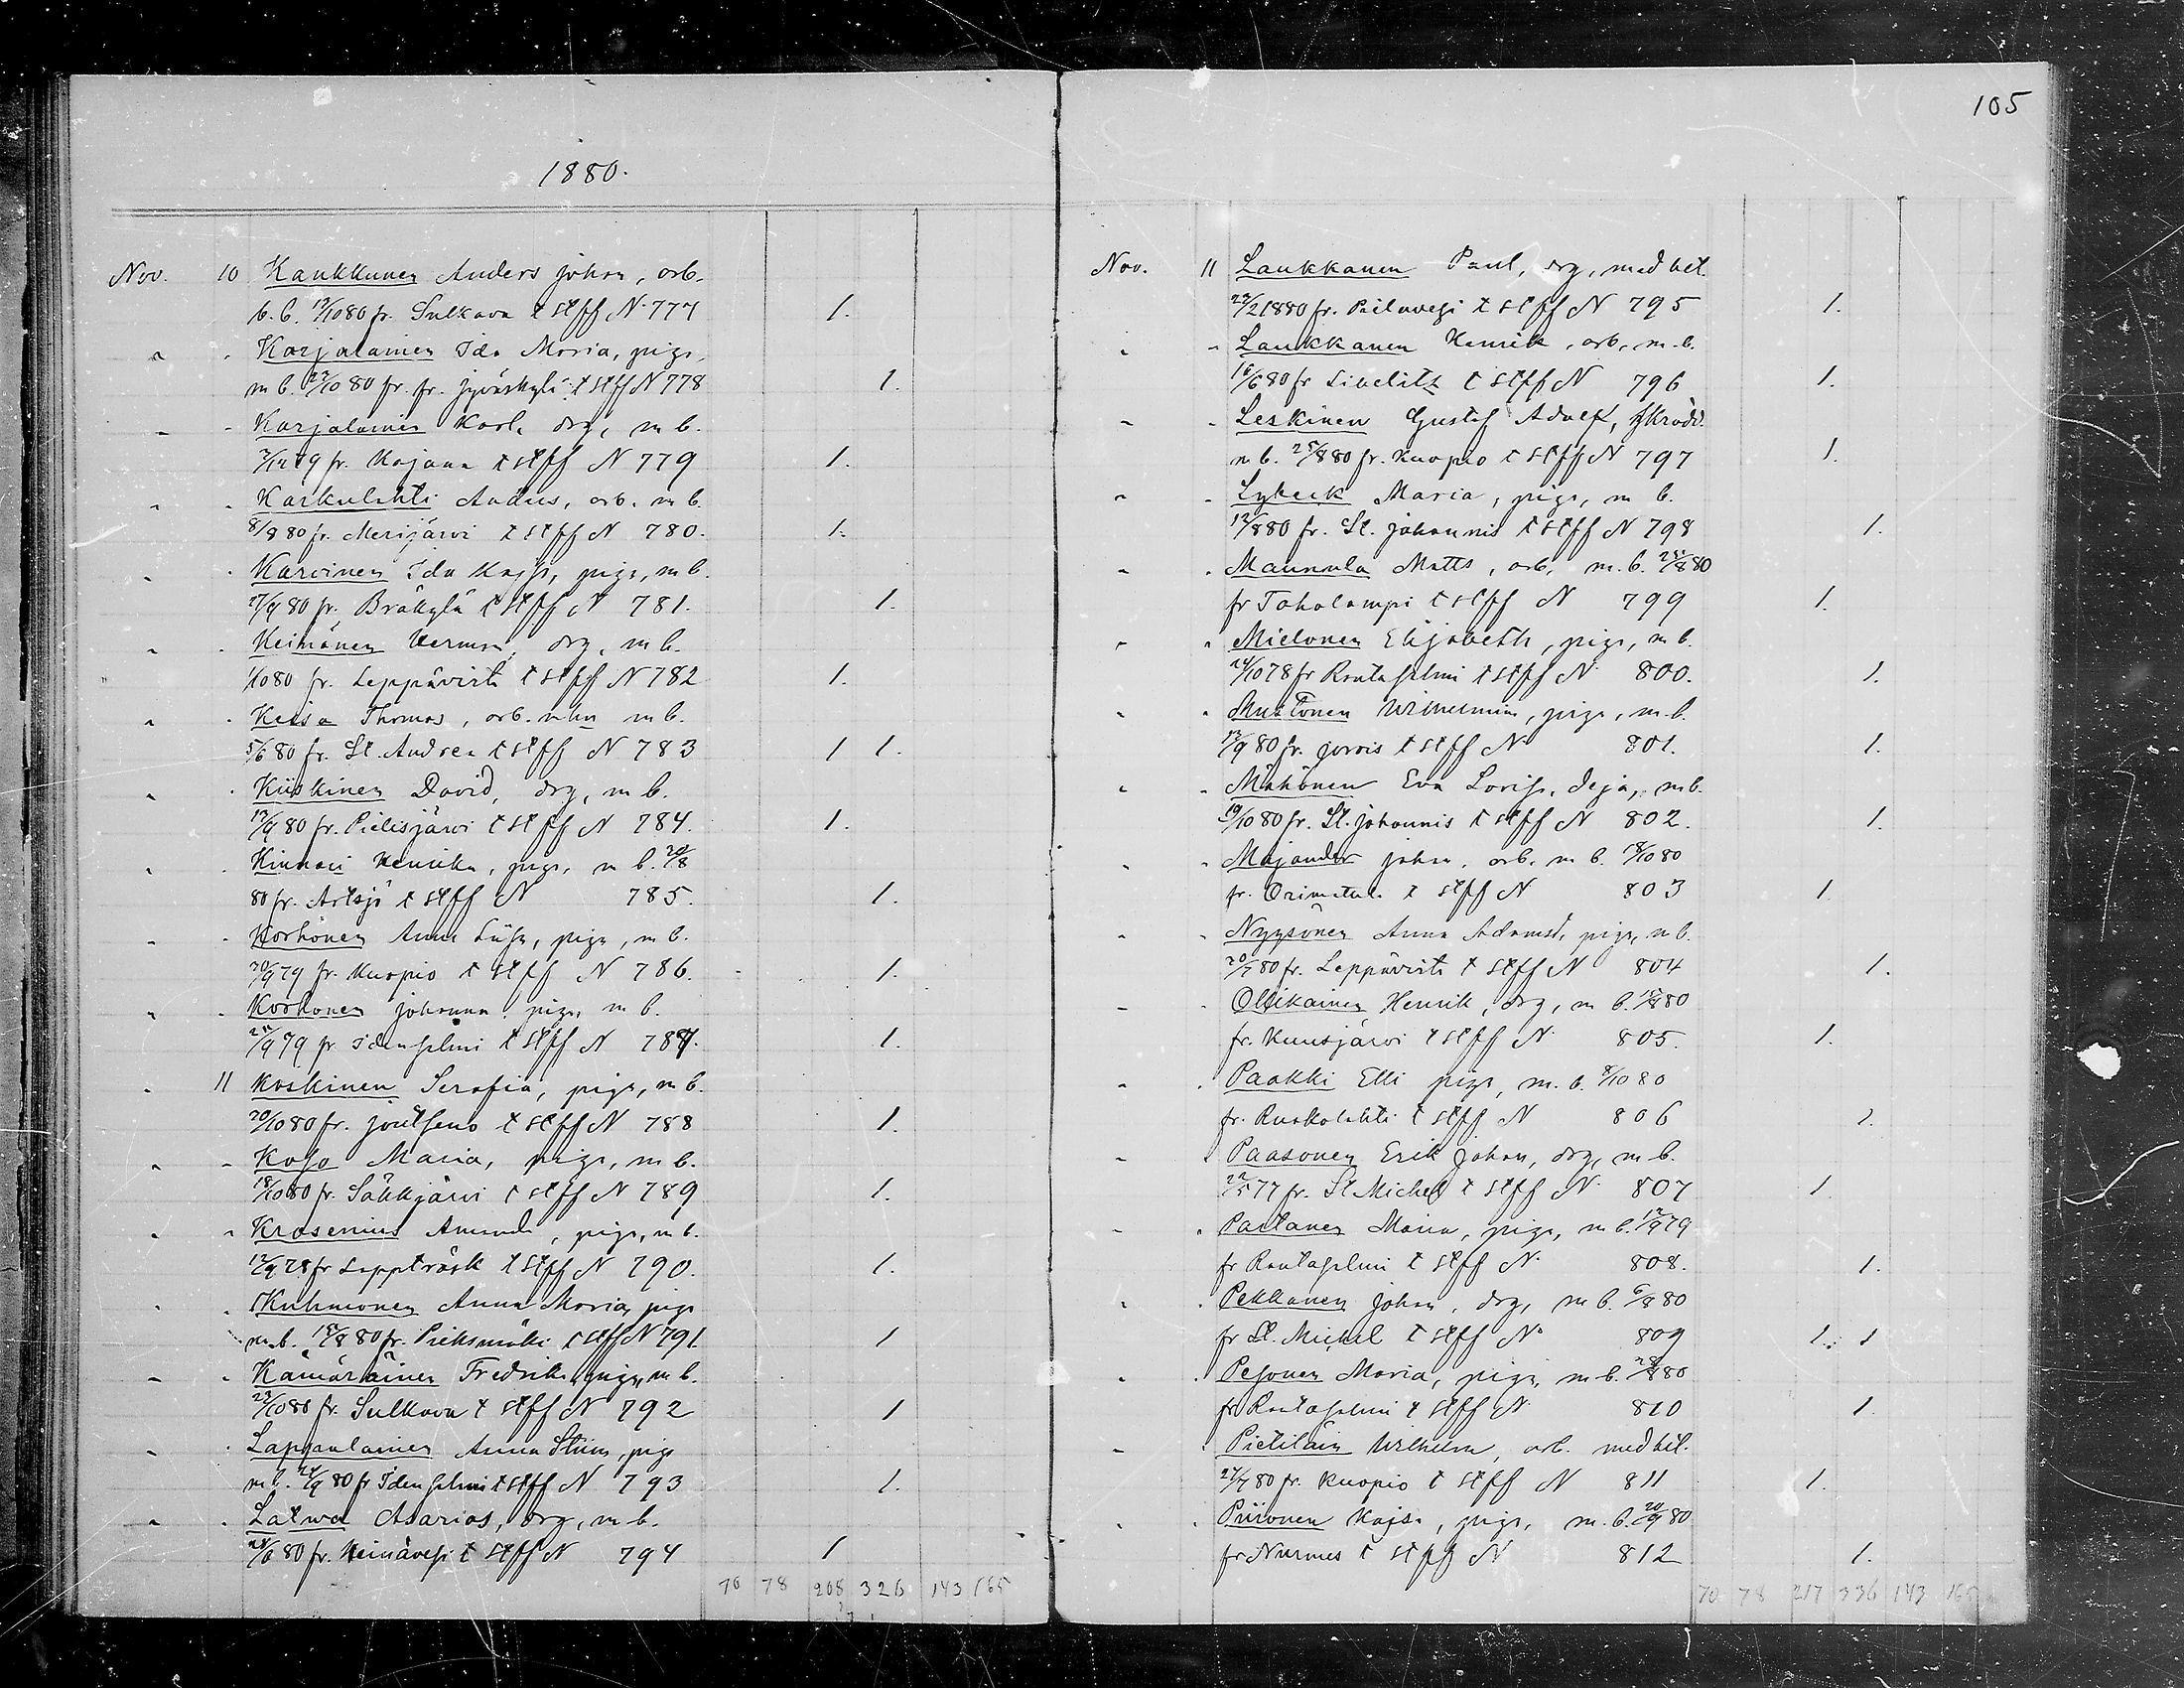 105
1880.
Nov. 10 Kaukkunen Anders Johan, arb.
b. b. 13/10 80 fr. Sulkava t Stff N. 777 1.
" " Karjalainen Ida Maria, piga,
m b. 23/10 80 fr. fr. Jyväskylä t Stff N 778 1.
" " Karjalainen Karl, drg, m b.
fr. Kajana t Stff N 779 1.
" " Karkulahti Anders, arb. m b.
8/8 80 fr. Merijärvi t Stff N 780. 1.
" " Karvinen Ida Kajsa, piga, m b.
27/9 80 fr. Bräkylä t Stff N 781. 1.
" " Heimonen Herman, drg, m b.
1/10 80 fr. Leppävirta t Stff N 782 1.
" " Keisa Thomas, arb. m hu m b.
5/6 80 fr. St. Andrea t Stff N 783 1 1.
" " Kiiskinen David, drg, m b.
17/9 80 fr. Pielisjärvi t Stff N 784. 1.
" " Kinnari Henrika, piga, m b. 20/8
80 fr. Artsjö t Stff N 785. 1.
" " Korhonen Anna Luisa, piga, m b.
30/9 79 fr. Kuopio t Stff N 786. 1.
" " Korhonen Johanna, piga, m b.
79 fr Idensalmi t Stff N 787. 1.
" 11 Koskinen Serafia, piga, m b.
20/10 80 fr. Joutseno t Stff N 788 1.
" " Koso Maria, piga, m b.
18/10 80 fr. Säkkjärvi t Stff N 789 1.
" " Krasenius Amanda, piga, m b.
12/9 78 fr Lappträsk t Stff N 790. 1.
" " Kuhmonen Anna Maria, piga
m b. 18/8 80 fr. Pieksmäki t Stff N 791. 1
" " Kämäräinen Fredrika, piga, m b.
23/10 80 fr. Sulkava t Stff N 792 1
" " Lappalainen Anna Stiina, piga
m b. 24/9 80 fr Idensalmi t Stff N 793 1.
" " Latwa Asarias, drg, m b.
28/6 80 fr. Heinävesi t Stff N 794 1
70 78 208 326 143 165
Nov. 11 Laukkanen Paul, drg, med bet.
23/2 1880 fr. Pielavesi t Stff N 795 1.
" " Laukkanen Henrik, arb, m b.
16/6 80 fr Libelitz t Stff N 796 1.
" " Leskinen Gustaf Adolf,
m b. 25/8 80 fr. Kuopio t Stff N 797 1.
" " Lybeck Maria, piga, m b.
12/8 80 fr. St. Johannis t Stff N 798 1.
" " Mannula Matts, arb, m. b. 80
fr Toholampi t Stff N 799 1.
" " Mielonen Elisabeth, piga, m b.
24/10 78 fr Rantasalmi t Stff N 800. 1.
" " Mustonen Wilhelmina, piga, m. b.
13/9 80 fr. Jorois t Stff N 801. 1.
" " Mähönen Eva Lovisa, deja, m b.
19/10 80 fr. St. Johannis t Stff N 802. 1.
" " Majander Johan, arb. m b. 18/10 80
fr. Orimattila t Stff N 803 1
" " Nyysönen Anna Adamsd. piga, m b.
20/7 80 fr. Leppävirta t Stff N 804 1.
" " Ollikainen Henrik, drg, m b. 80
fr. Kuusjärvi t Stff N 805. 1.
" " Paakki Elli piga, m. b. 8/10 80
fr. Ruskolahti t Stff N 806 1.
" " Paasonen Erik Johan, drg, m b.
22/5 77 fr. St Michel t Stff N. 807 1.
" " Partanen Maria, piga, m b. 12/9 79
fr Rantasalmi t Stff N. 808. 1.
" " Pekkanen Johan, drg, m b. 6/8 80
fr St. Michel t Stff N. 809 1. 1
" " Pesonen Maria, piga, m b. 28/8 80
fr Rantasalmi t Stff N. 810 1.
" " Pietiläin Wilhelm, arb. med bet.
27/7 80 fr. Kuopio t Stff N 811 1.
" " Piironen Kajsa, piga, m. b. 20/9 80
fr Nurmes t Stff N 812 1.
70 78 217 336 143 165